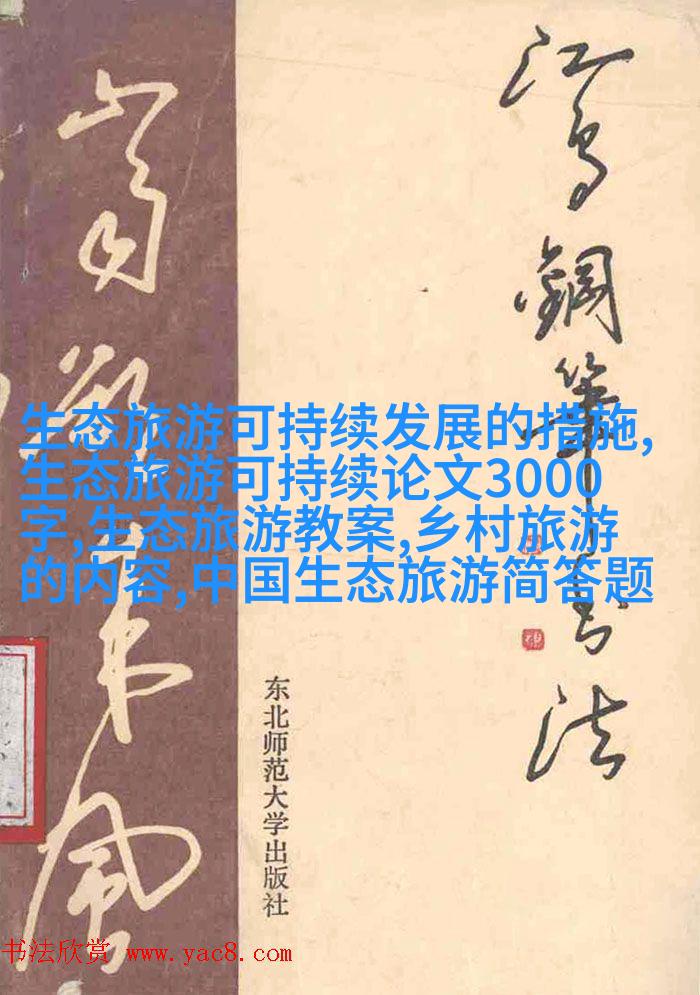 江鸟鋼筆书法
生态旅游可持续发展的措施,
生态旅游可持续论文3000
字,生态旅游教案,乡村旅游
的内容,中国生态旅游简答题
东北师范大学出版社
书法欣赏 www.yac8.com